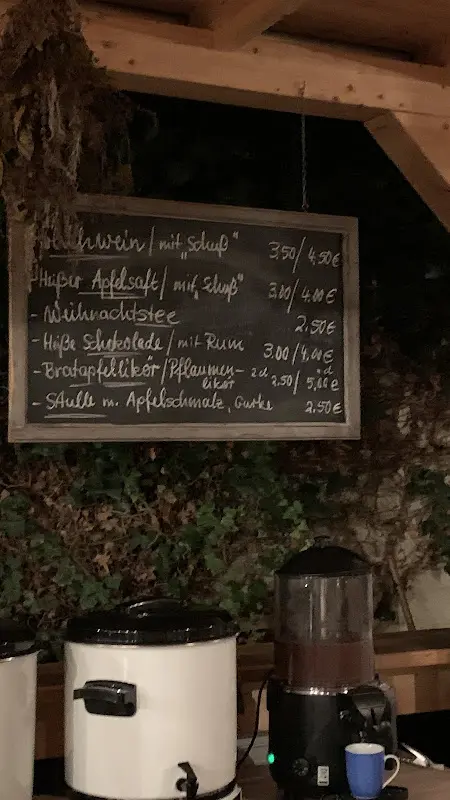 mit "Schuß" 3,50/4,50€
Heißer Apfelsaft / mit "Schuß" 3,00/4,00€
- Weihnachtstee 2,50€
- Heiße Schokolade / mit Rum 3.00/4,00€
- Bratapfellikör / Pflaumen- 2cl 2,50/ 5,00€
likör
- Stulle m. Apfelschmalz, Gurke 2,50€